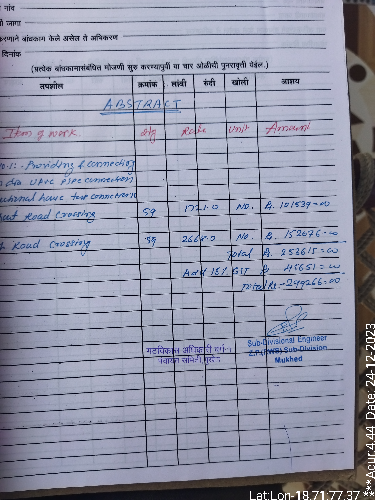 गांव
ी जागा
करणाने बांधकाम केले असेल ते अधिकरण
दिनांक
(प्रत्येक बांधकामासंबंधित मोजणी सुरु करण्यापुर्वी या चार ओळींची पुनरावृत्ती येईल.)
तपशील क्रमांक लांबी रुंदी खोली आशय
ABSTRACT
Item of work. Qty Rate Unit Amount
No-1:- Providing & connecting
dia UPVC Pipe connection
functional house tap connection
out Road Crossing 59 1721.0 No. Rs. 101539=00
Road Crossing 59 No. Rs. 152076=00
Total Rs. 253615=00
Add 18% GST Rs. 45651=00
Total Rs.- 299266=00
Sub-Divisional Engineer
Z.P.(RWS) Sub-Division
Mukhed
गटविकास अधिकारी
पंचायत समिती मुखेड
Lat Lon-18.71,77.37 ***Acur 4.44 Date: 24-12-2023